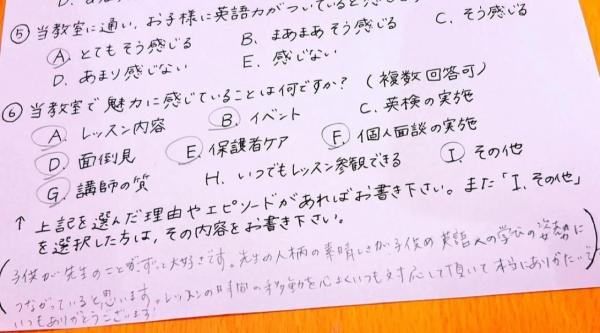 ⑤ 当教室に通い、お子様に英語力がついていると感じ
A. とてもそう感じる B. まあまあそう感じる C. そう感じる
D. あまり感じない E. 感じない
⑥ 当教室で魅力に感じていることは何ですか?(複数回答可)
A. レッスン内容 B. イベント C. 英検の実施
D. 面倒見 E. 保護者ケア F. 個人面談の実施
G. 講師の質 H. いつでもレッスン参観できる I. その他
↑ 上記を選んだ理由やエピソードがあればお書き下さい。また「I. その他」
を選択した方は、その内容をお書き下さい。
(子供が先生のことがずっと大好きです。先生の人柄の素晴しさが、子供の英語への学びの姿勢に
つながっていると思います。レッスンの時間の移動を心よくいつも対応して頂いて本当にありがたいです
いつもありがとうございます!